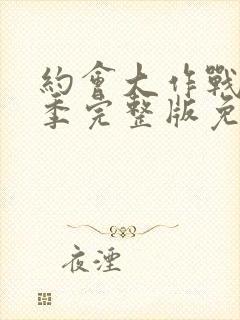 約會大作戰
季完整版免
夜湮